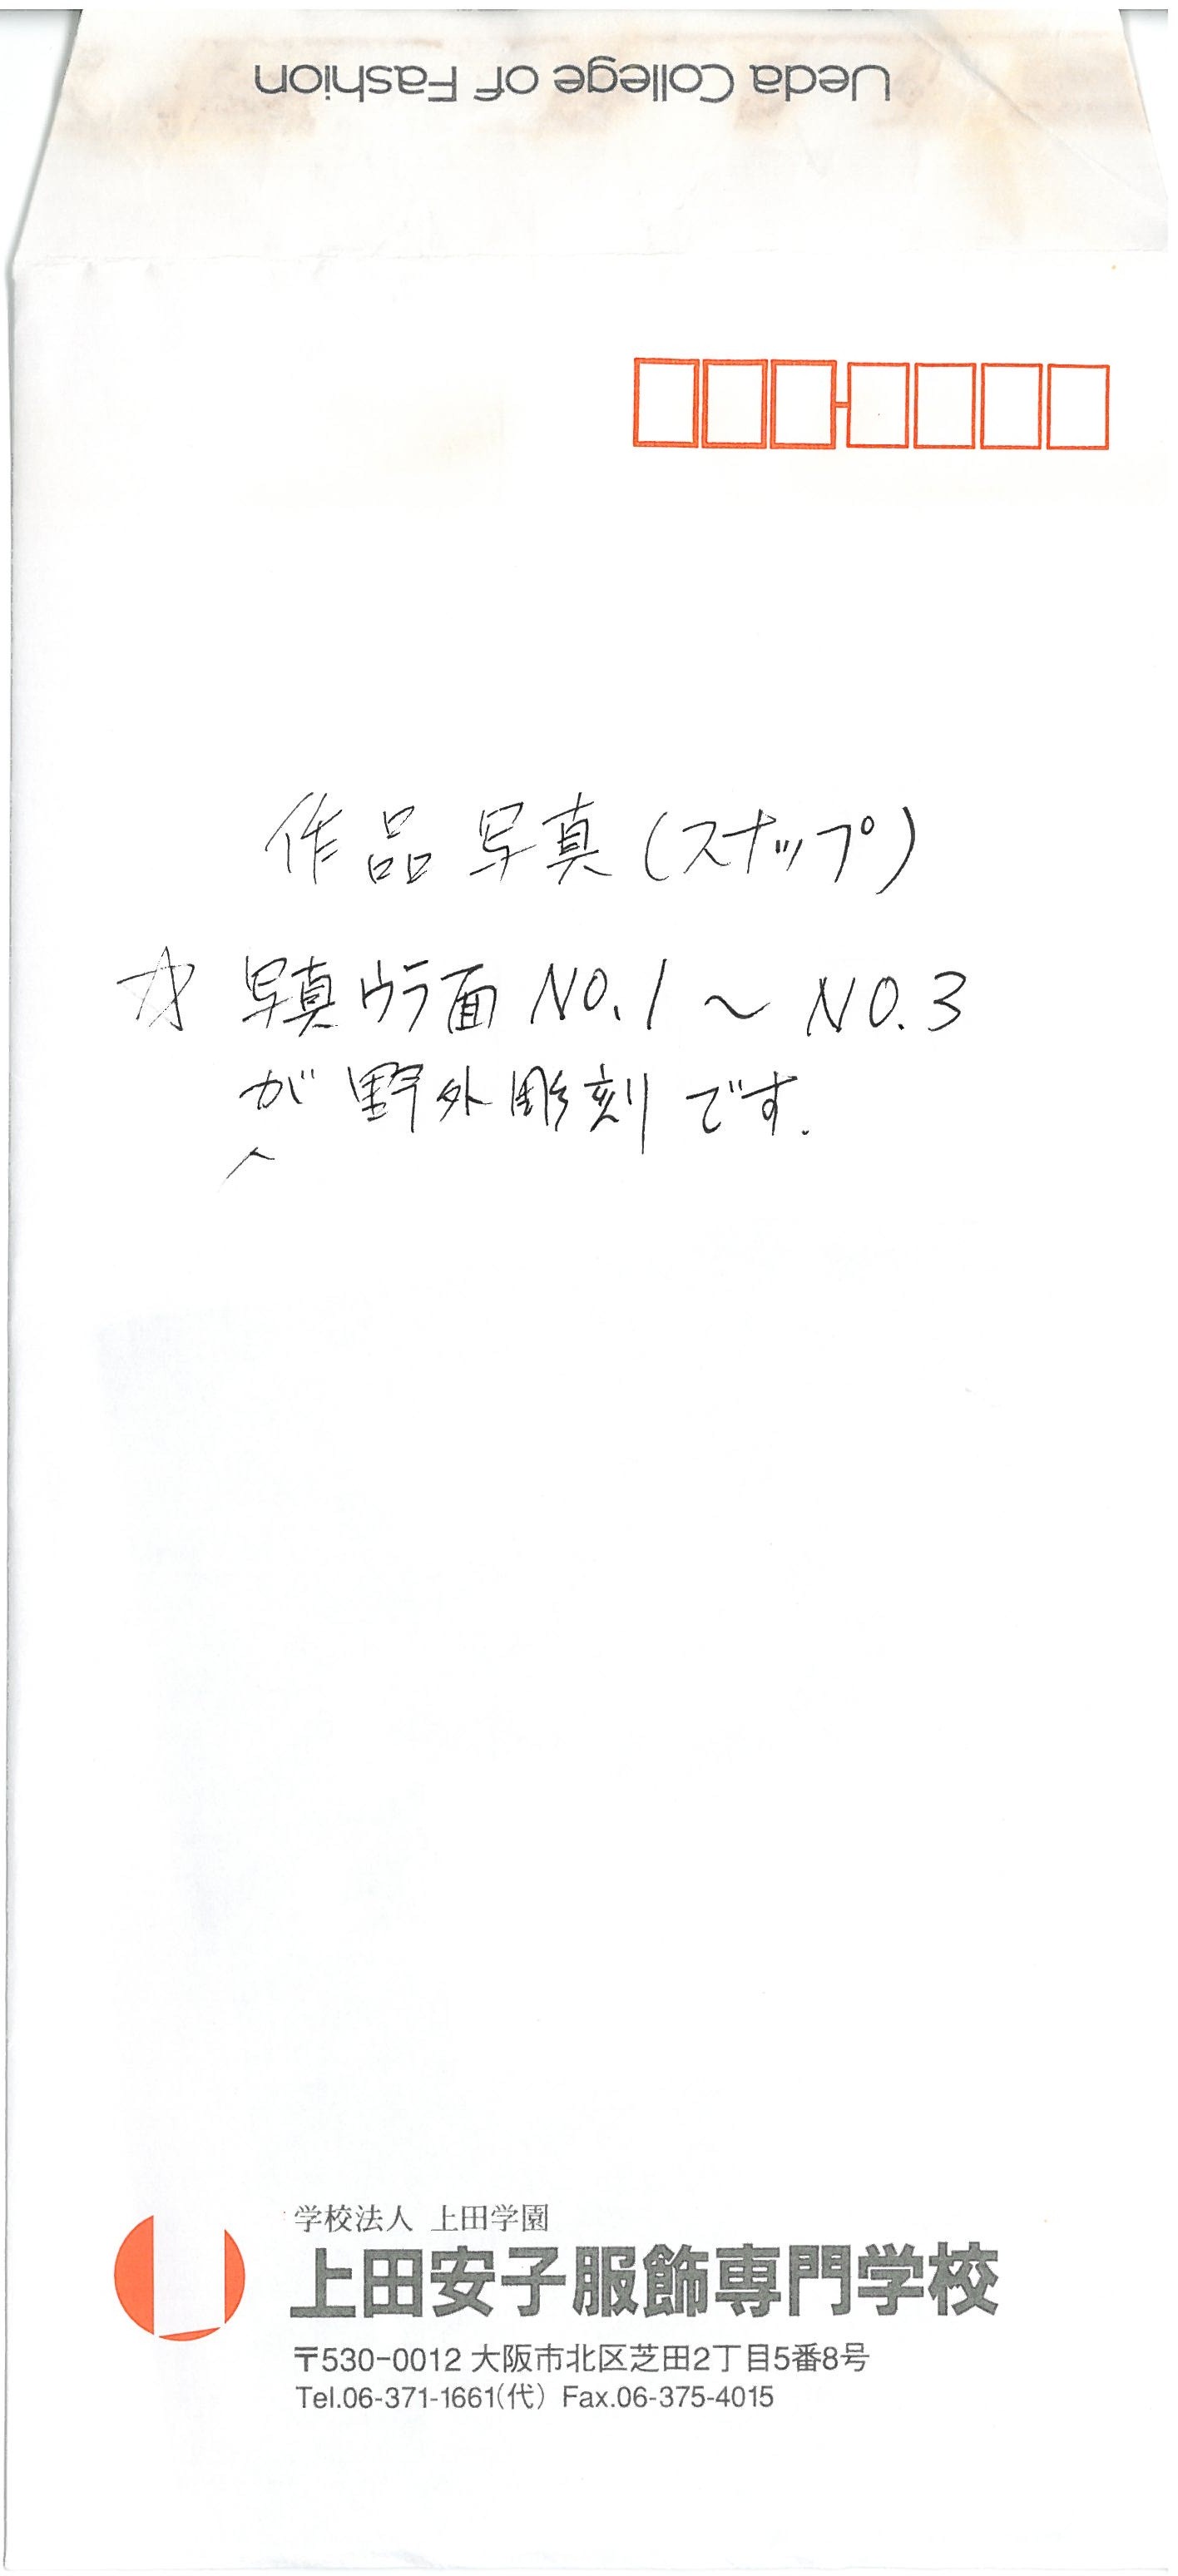 Ueda College of Fashion
作品写真(スナップ)
☆ 写真ウラ面 NO.1 ~ NO.3
が野外彫刻です.
学校法人 上田学園
上田安子服飾専門学校
〒530-0012 大阪市北区芝田2丁目5番8号
Tel.06-371-1661(代) Fax.06-375-4015